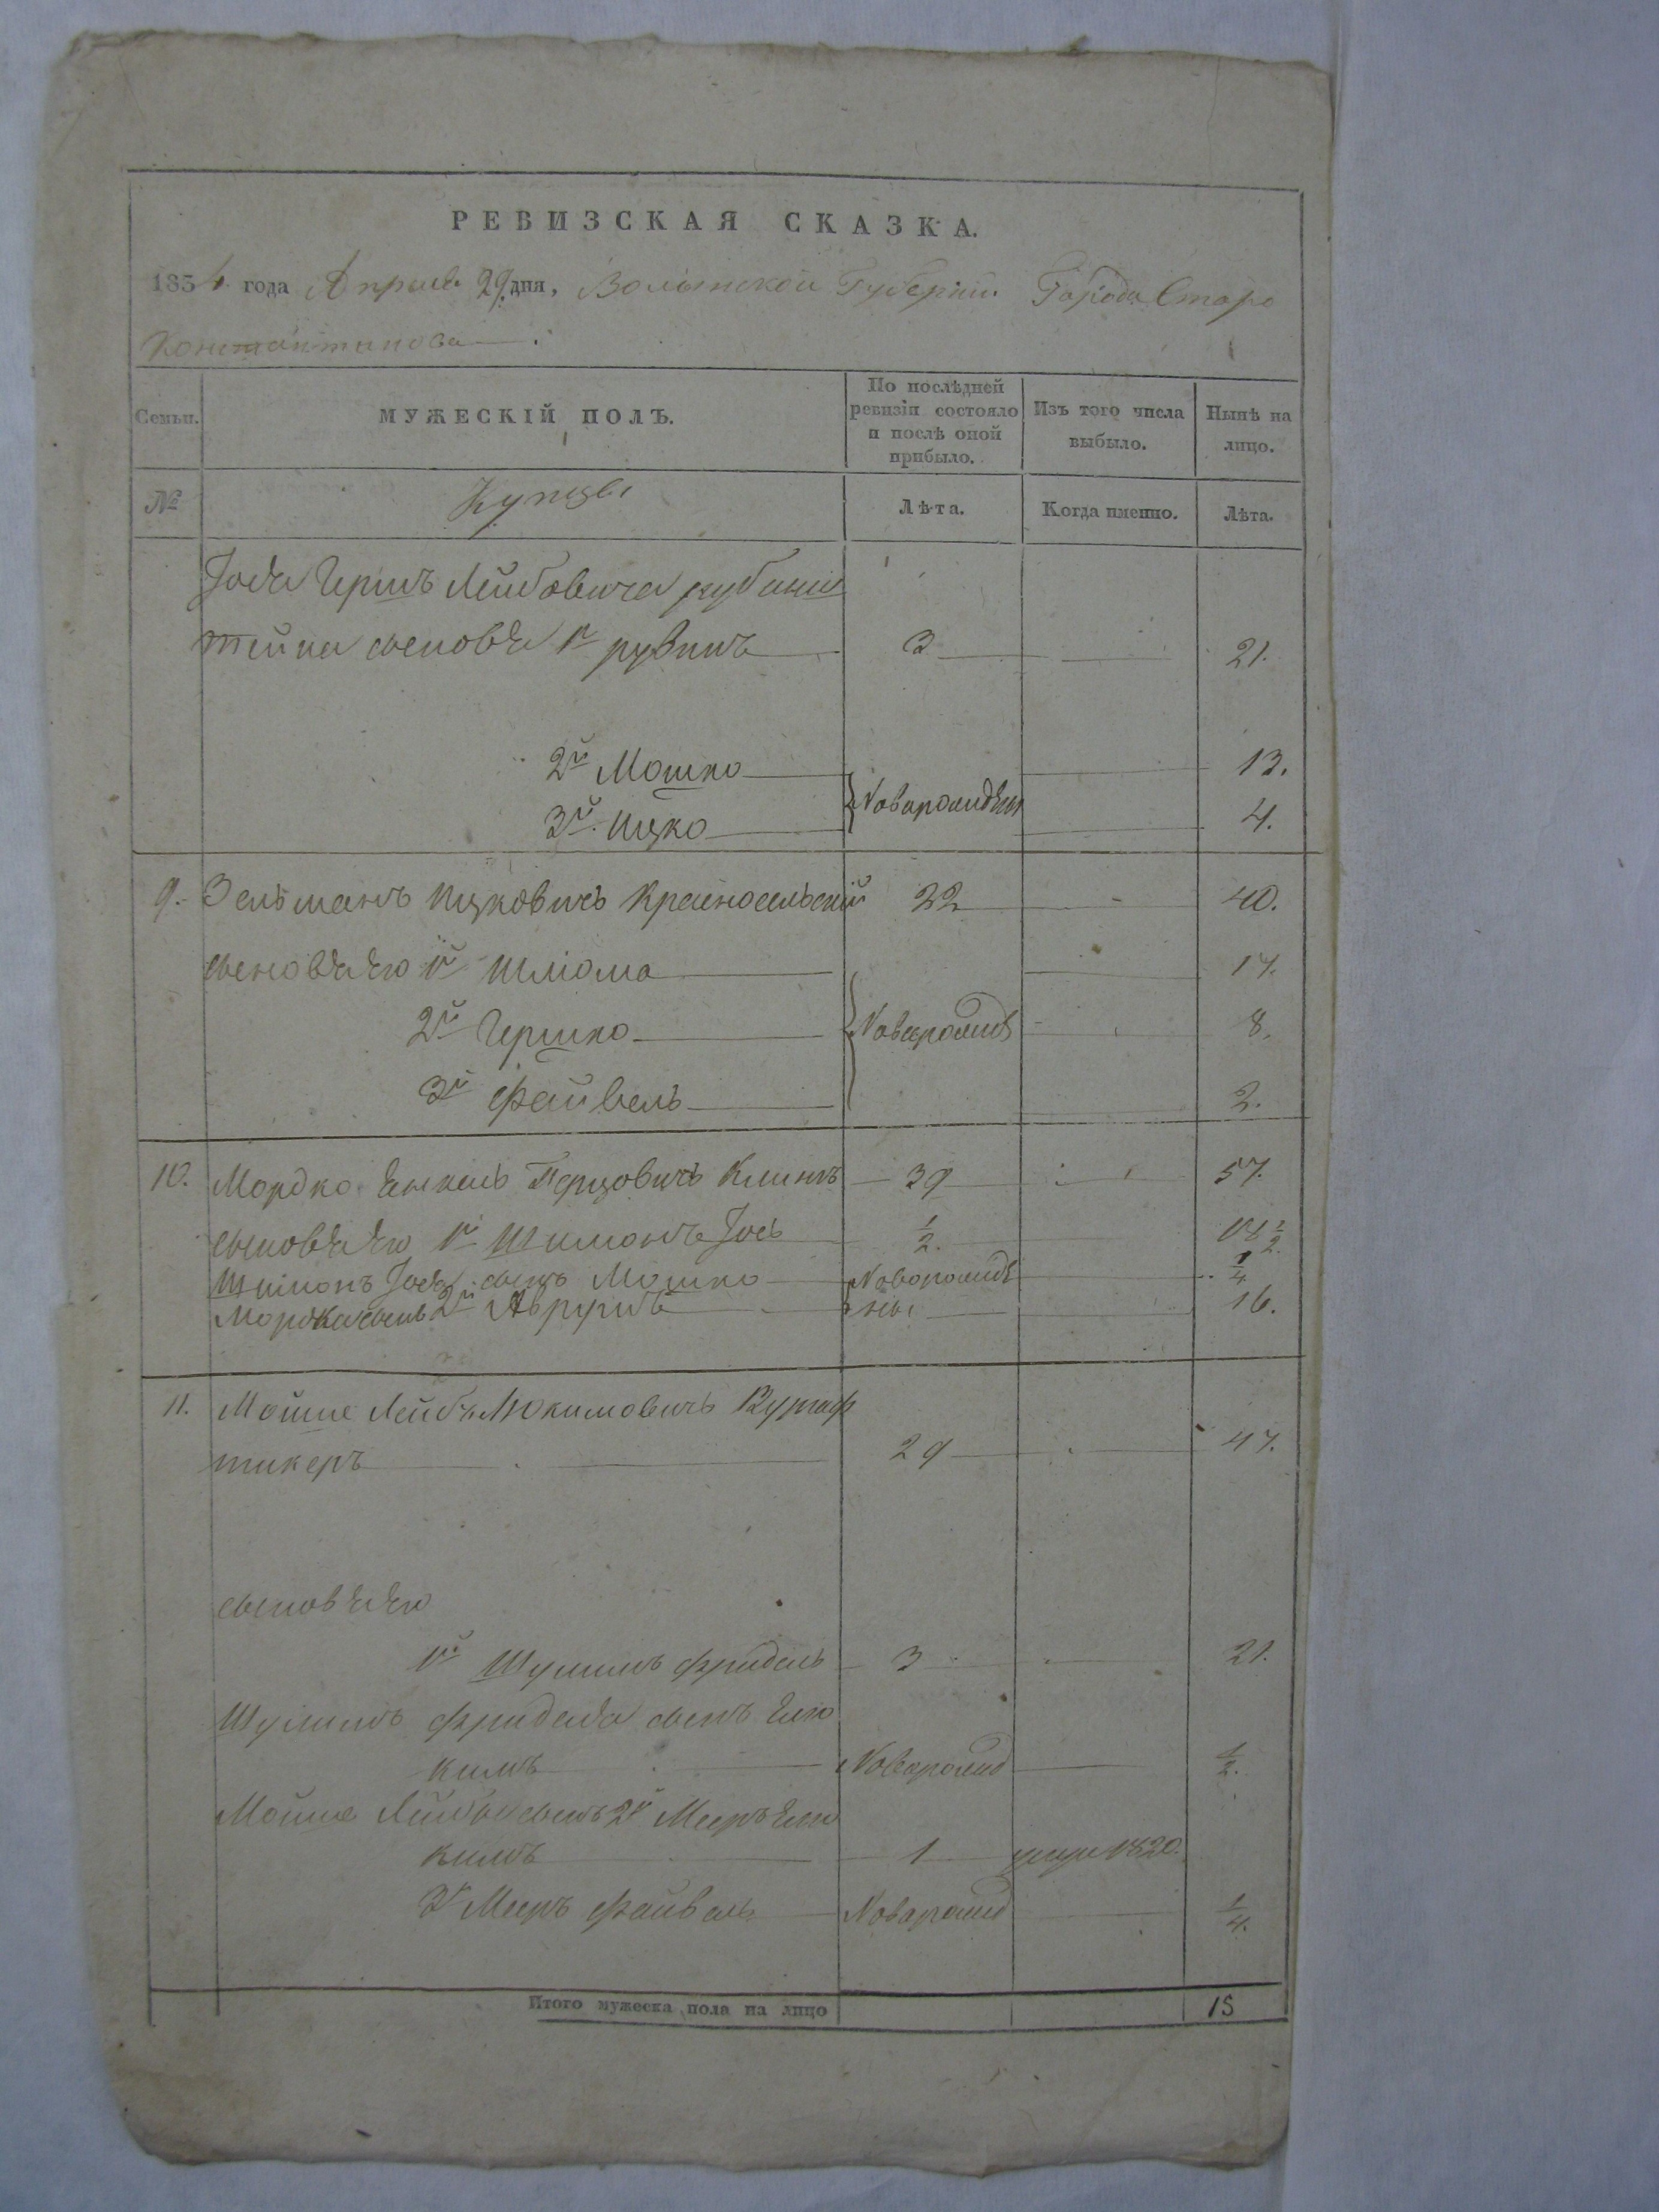 РЕВИЗСКАЯ СКАЗКА.
1854 года Апреля 29 дня, Волынской Губернии Города Старо
Константинова
Семьи. МУЖЕСКІЙ ПОЛЪ. По послѣдней ревизіи состояло и послѣ оной прибыло. Изъ того числа выбыло. Нынѣ на лицо.
№ Купцы Лѣта. Когда именно. Лѣта.
Іося Гершъ Лейбовича рубинш
тейна сыновья 1й рувинъ 3 21.
2й Мошко 13.
Новорожден
3й Ицко 4.
9. Зельманъ Ицковичъ Красносельскій 22 40.
сыновья его 1й Шліома 17.
2й Гершко Новорожд 8.
3й Файвель 2.
10. Мордко Янкель Перцовичъ Клинъ 39 57.
сыновья его 1й Шимонъ Іось 1/2. 18 1/2.
Шимонъ Іося сынъ Мошко Новорожде 1/4
Мордка сынъ 2й Аврумъ ны 16.
11. Мойше Лейбъ
тикеръ 29 47.
сыновья его
1й Шулимъ Фридель 3 21.
Шулимъ Фриделя сынъ Елю
кимъ Новорожд 1/2.
Мойше Лейбы сынъ 2й Мееръ Елю
кимъ 1
3й Мееръ Файвель Новорожд 1/4.
Итого мужеска пола на лицо 15